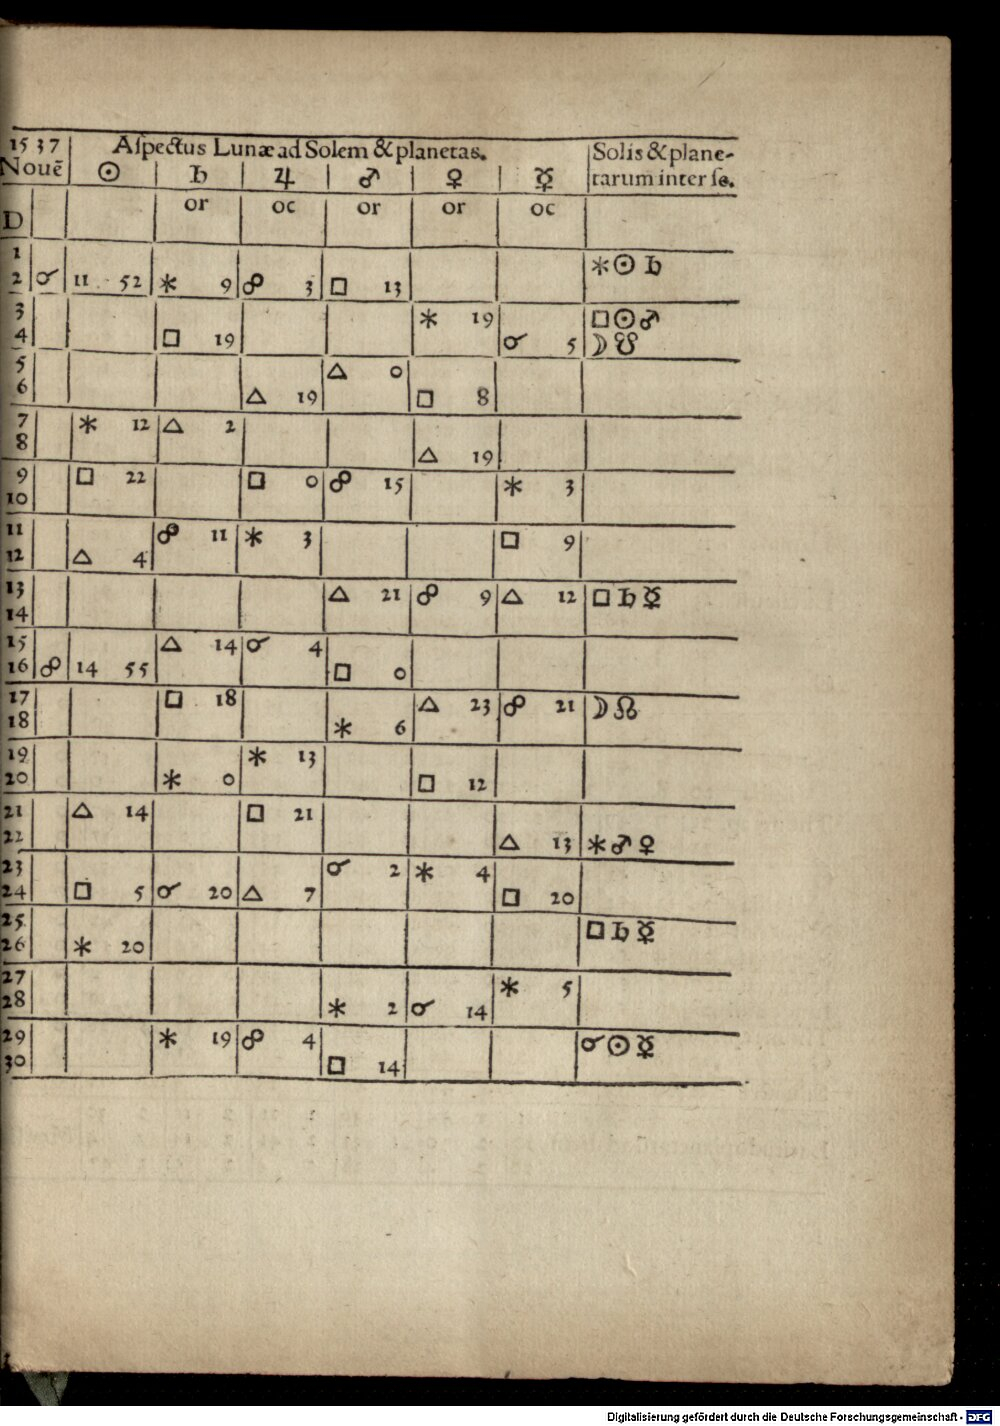 1537 Aſpectus Lunæ ad Solem & planetas. Solis & plane-
Nouē ☉ ♄ ♃ ♂ ♀ ☿ tarum inter ſe.
D or oc or or oc
1 ⚹ ☉ ♄
2 ☌ 11 52 ⚹ 9 ☍ 3 □ 13
3 ⚹ 19 □ ☉ ♂
4 □ 19 ☌ 5 ☽ ☋
5 △ 0
6 △ 19 □ 8
7 ⚹ 12 △ 2
8 △ 19
9 □ 22 □ 0 ☍ 15 ⚹ 3
10
11 ☍ 11 ⚹ 3 □ 9
12 △ 4
13 △ 21 ☍ 9 △ 12 □ ♄ ☿
14
15 △ 14 ☌ 4
16 ☍ 14 55 □ 0
17 □ 18 △ 23 ☍ 21 ☽ ☊
18 ⚹ 6
19 ⚹ 13
20 ⚹ 0 □ 12
21 △ 14 □ 21
22 △ 13 ⚹ ♂ ♀
23 ☌ 2 ⚹ 4
24 □ 5 ☌ 20 △ 7 □ 20
25 □ ♄ ☿
26 ⚹ 20
27 ⚹ 5
28 ⚹ 2 ☌ 14
29 ⚹ 19 ☍ 4 ☌ ☉ ☿
30 □ 14
Digitalisierung gefördert durch die Deutsche Forschungsgemeinschaft - DFG